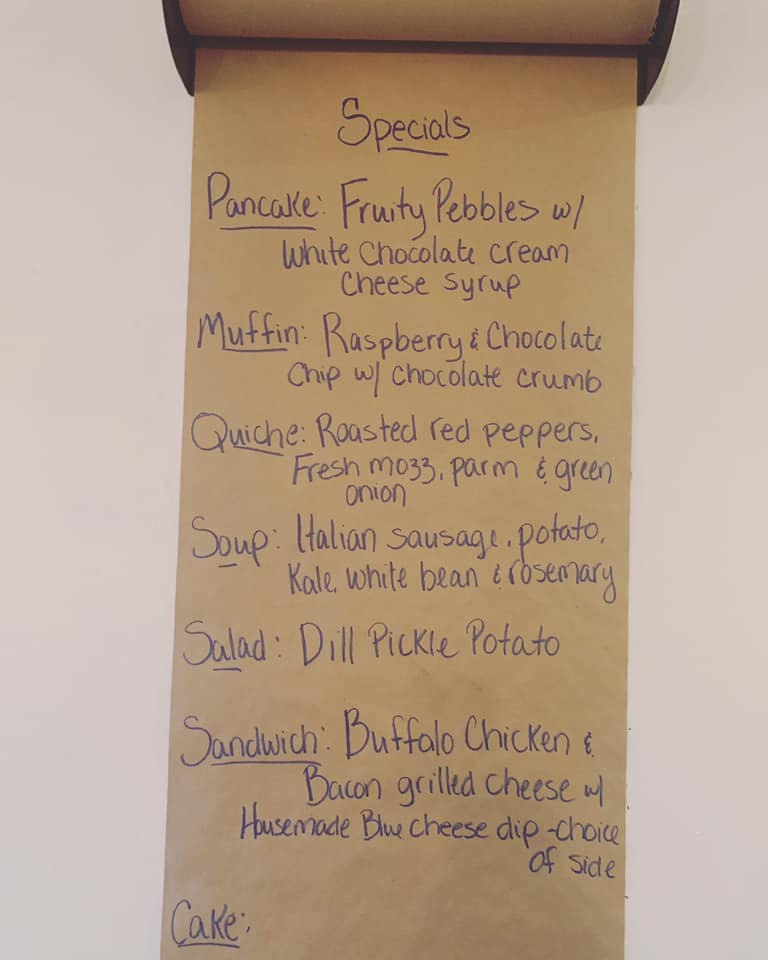 Specials
Pancake: Fruity Pebbles w/
White Chocolate cream
Cheese syrup
Muffin: Raspberry & Chocolate
Chip w/ chocolate crumb
Quiche: Roasted red peppers,
Fresh mozz, parm & green
onion
Soup: Italian sausage, potato,
Kale, white bean & rosemary
Salad: Dill Pickle Potato
Sandwich: Buffalo Chicken &
Bacon grilled cheese w/
Housemade Blue cheese dip - choice
of side
Cake: